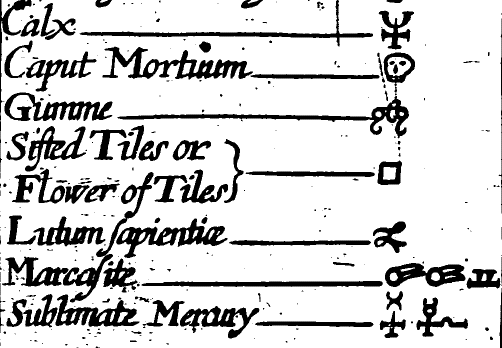 Calx
Caput Mortuum
Gumme
Sifted Tiles or
Flower of Tiles
Lutum ſapientiæ
Marcaſite
Sublimate Mercury